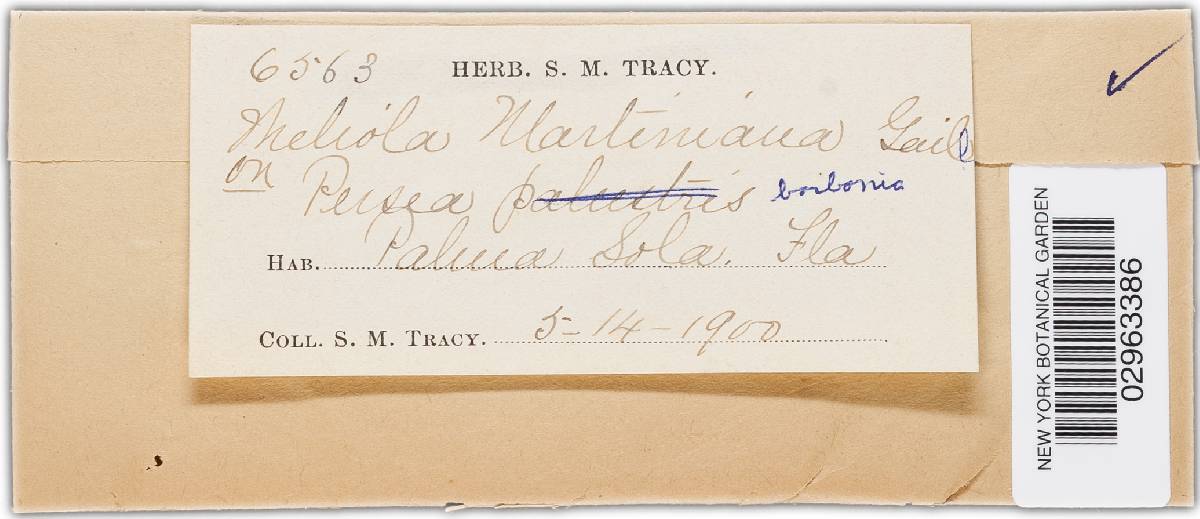 6563 HERB. S. M. TRACY.
Meliola Martiniana Gaill
on Persea palustris borbonia
HAB. Palma Sola. Fla
COLL. S. M. TRACY. 5-14-1900
NEW YORK BOTANICAL GARDEN
02963386